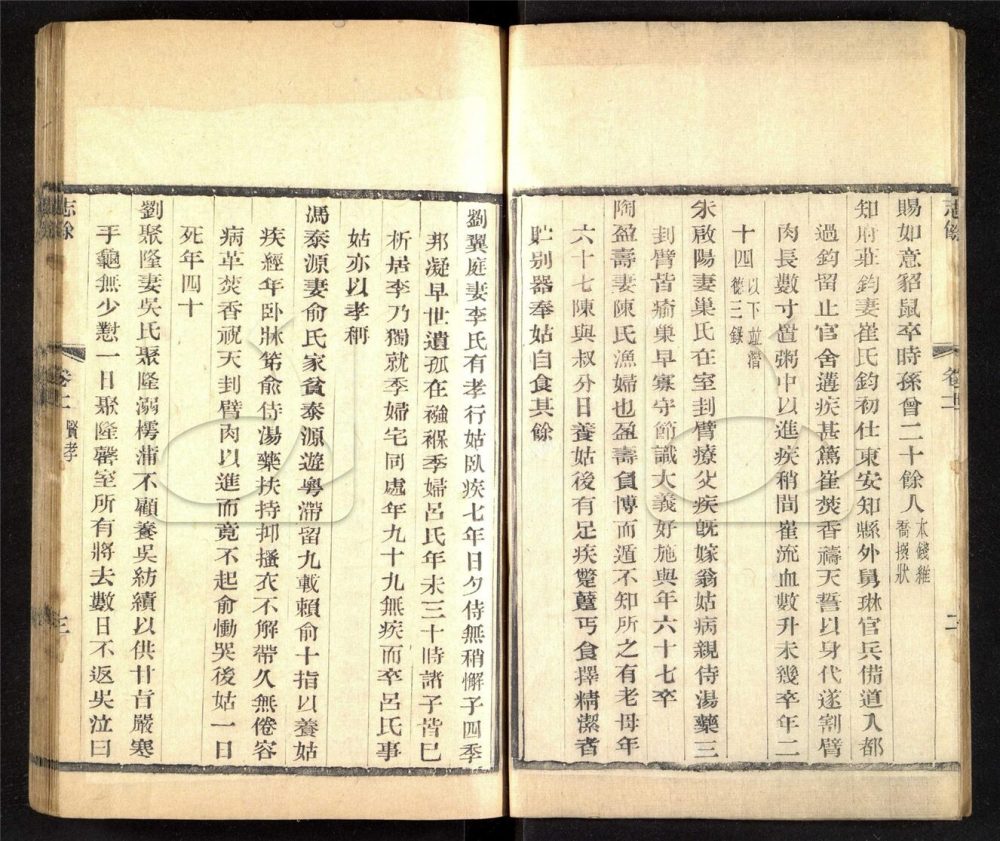 賜如意貂鼠卒時孫曾二十餘人本錢維
喬撰狀
知府莊鈞妻崔氏鈞初仕東安知縣外舅琳官兵備道入都
過鈞留止官舍遘疾甚篤崔焚香禱天誓以身代遂割臂
肉長數寸置粥中以進疾稍間崔流血數升未幾卒年二
十四以下並潛
德三錄
朱啟陽妻巢氏在室刲臂療父疾旣嫁翁姑病親侍湯藥三
刲臂皆瘉巢早寡守節識大義好施與年六十七卒
陶盈壽妻陳氏漁婦也盈壽負博而遁不知所之有老母年
六十七陳與叔分日養姑後有足疾蹩躠丐食擇精潔者
貯别器奉姑自食其餘
志餘
卷二
二
劉翼庭妻李氏有孝行姑臥疾七年日夕侍無稍懈子四季
邦凝早世遺孤在襁褓季婦呂氏年未三十時諸子皆已
析居李乃獨就季婦宅同處年九十九無疾而卒呂氏事
姑亦以孝稱
馮泰源妻俞氏家貧泰源遊粵滯留九載賴俞十指以養姑
疾經年卧牀笫俞侍湯藥扶持抑搔衣不解帶久無倦容
病革焚香祝天刲臂肉以進而竟不起俞慟哭後姑一日
死年四十
劉聚隆妻吳氏聚隆溺樗蒲不顧養吳紡績以供甘旨嚴寒
手龜無少懟一日聚隆罄室所有將去數日不返吳泣曰
志餘
卷二 賢孝
三